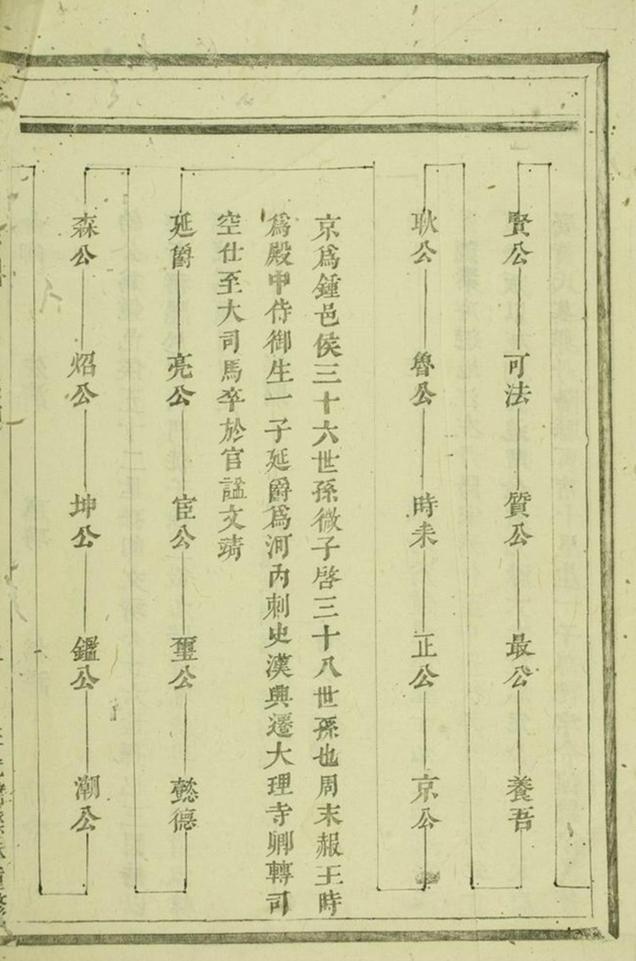 賢公 可法 質公 最公 養吾
耿公 魯公 時耒 正公 京公
京爲鍾邑侯三十六世孫微子啓三十八世孫也周末赧王時
爲殿中侍御生一子延爵爲河內刺史漢興遷大理寺卿轉司
空仕至大司馬卒於官諡文靖
延爵 亮公 宦公 璽公 懿德
森公 炤公 坤公 鑑公 潮公